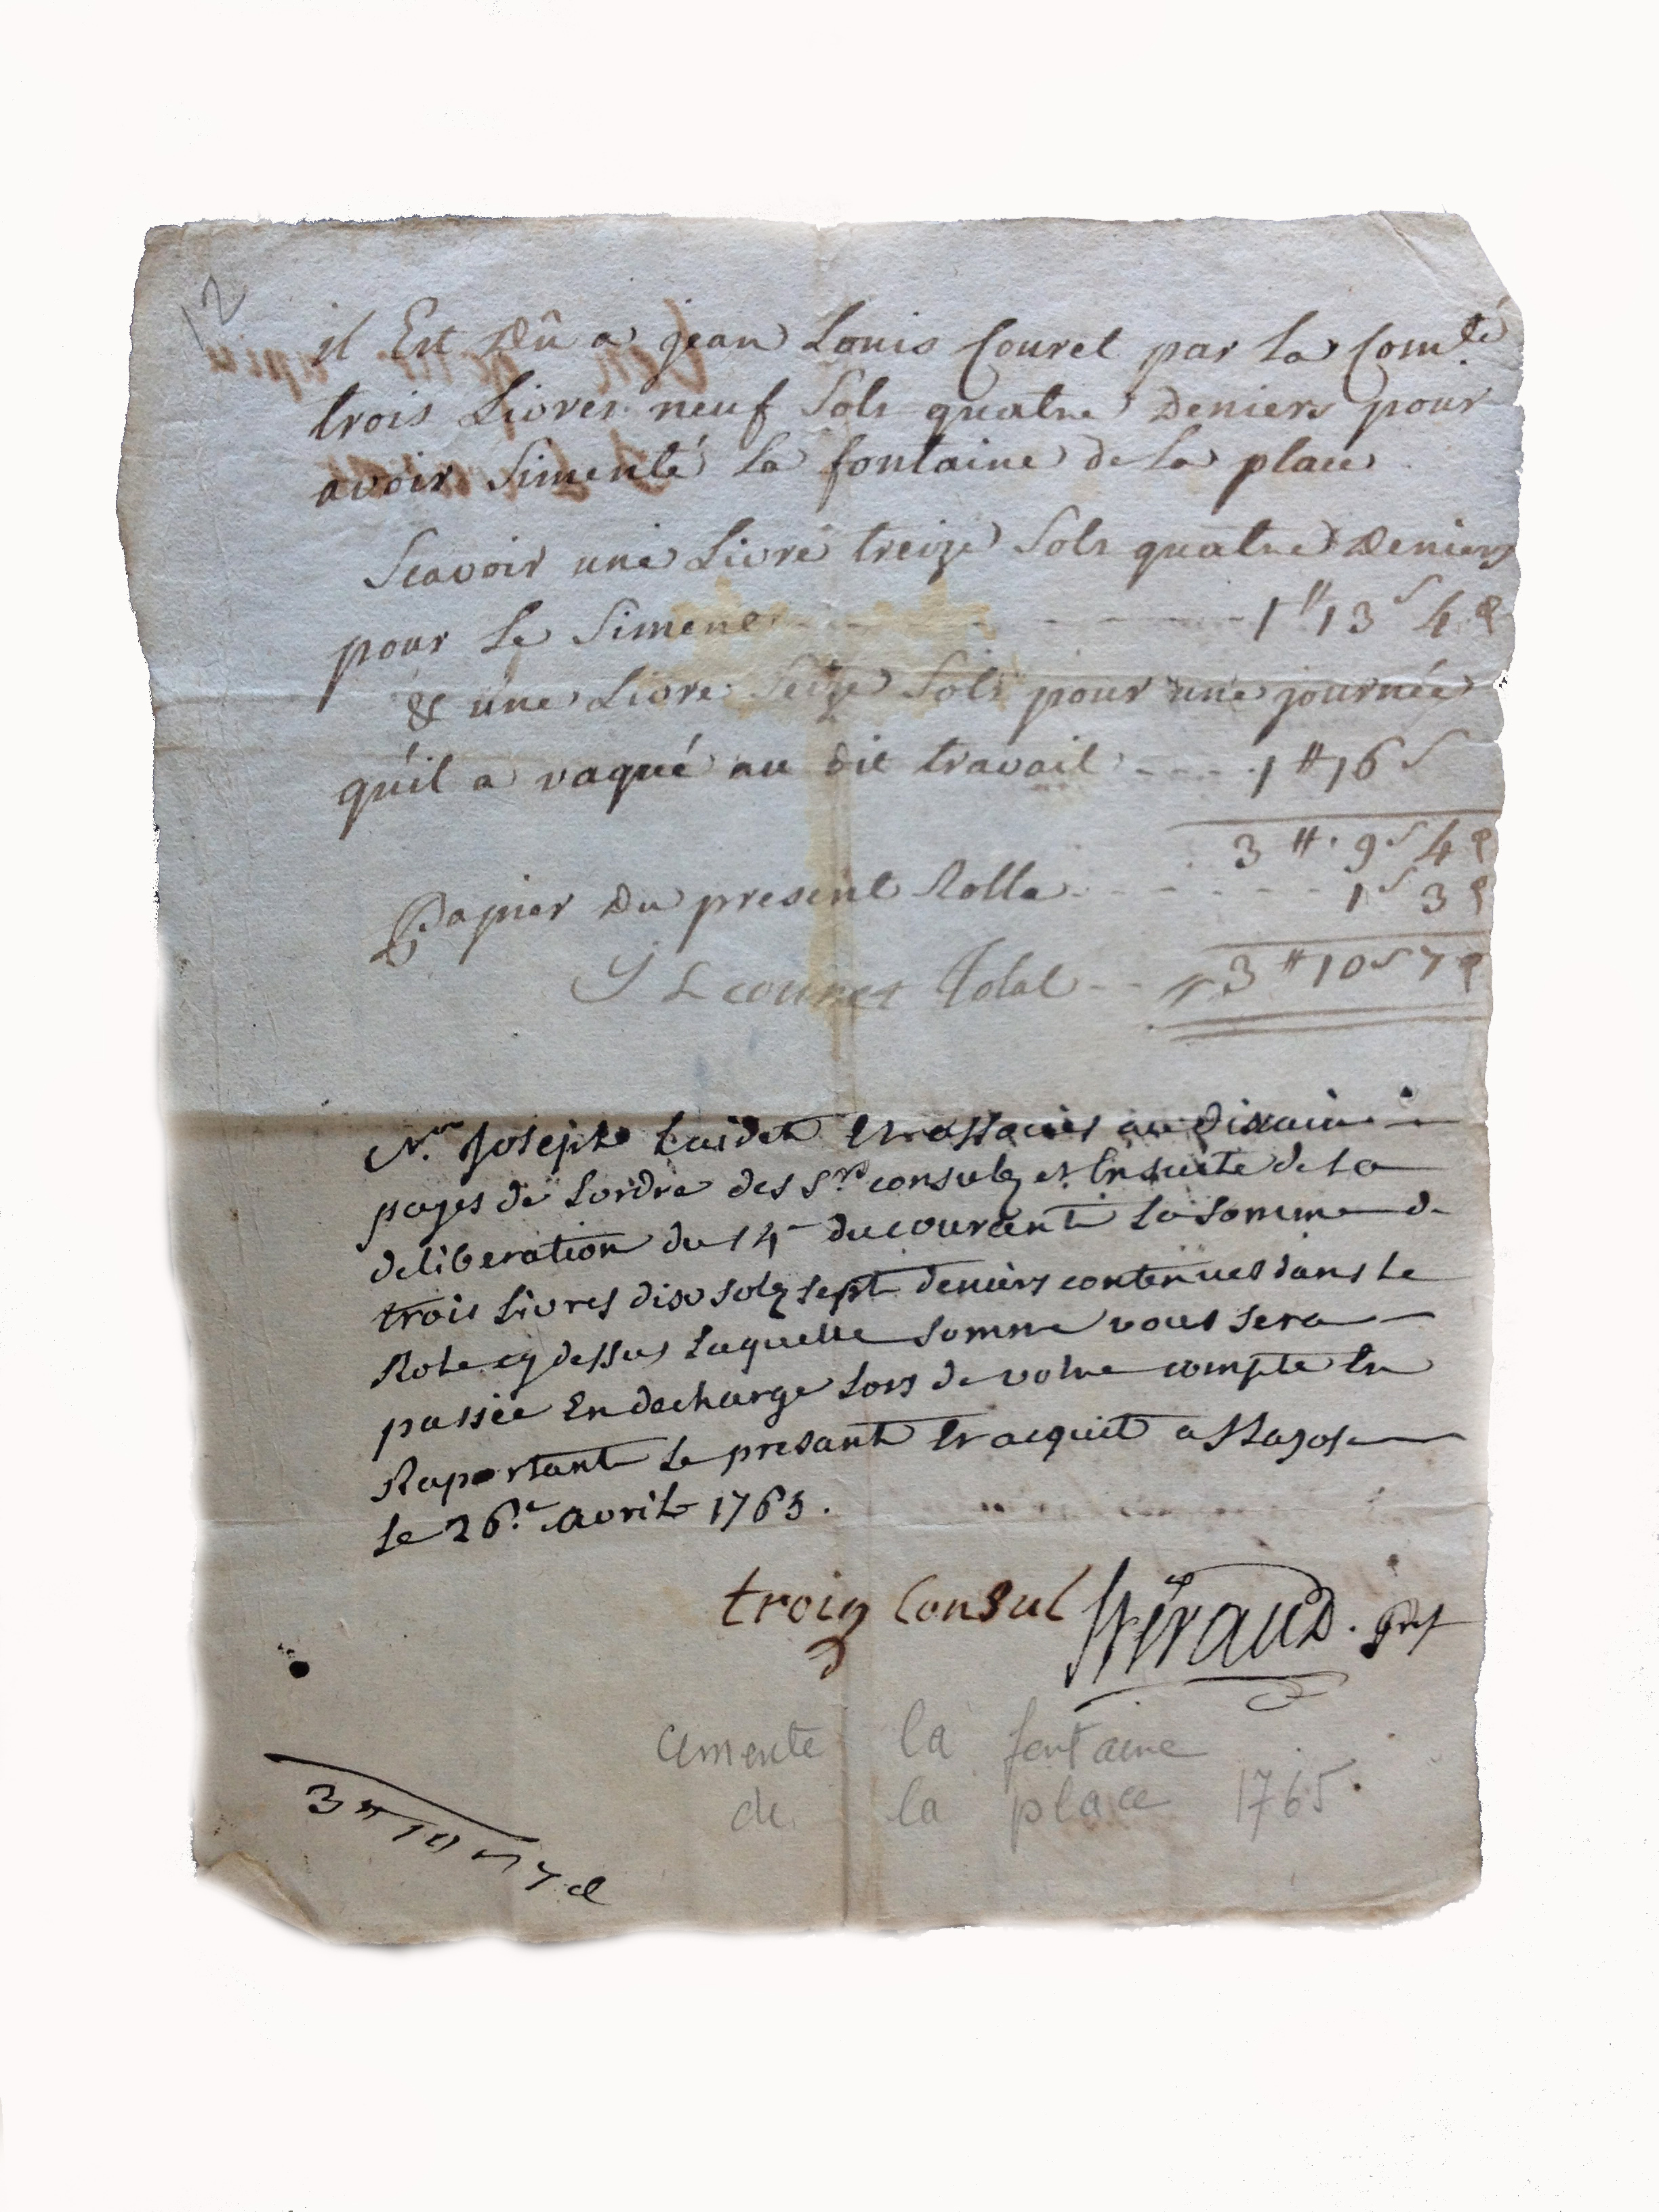 12
il Est Dû a jean Louis Couret par la Comté
trois Livres neuf Sols quatre Deniers pour
avoir Simenté la fontaine de la place
Scavoir une Livre treize Sols quatre Deniers
pour le Siment - - - - - - 1# 13 s 4 d
& une Livre Seize Sols pour une journée
qu'il a vaqué au dit travail - - - 1# 16 s
3# 9 s 4 d
Papier du present Rolle - - - - - 1 s 3 d
J L couret Total - - 3# 10 s 7 d
Joseph
payes de Lordre des Srs consulz et Ensuite de la
deliberation du 14e du courant la somme de
trois livres dix solz sept deniers contenues dans le
Role cy dessus laquelle somme vous sera
passée En decharge lors de votre compte En
Raportant le presant Et acquit a
le 26e. avril 1765.
troin Consul Héraud. Grf
3# 10 s 7 d
cimente la fontaine
de la place 1765